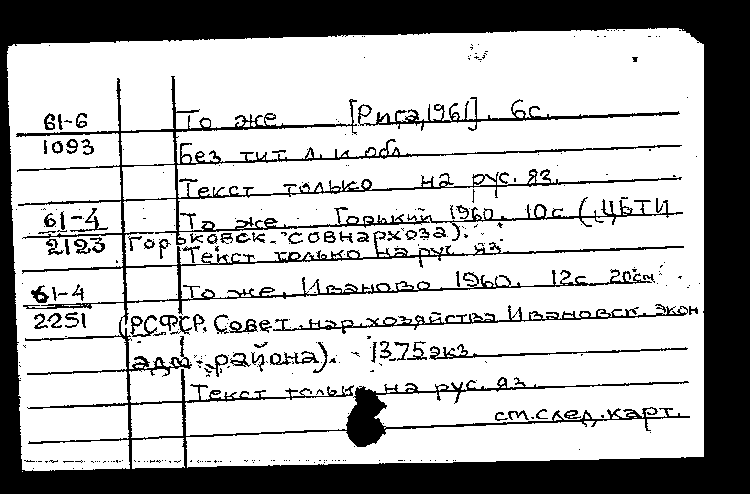 61-6 То же. [Рига, 1961]. 6с.
1093 Без тит. л. и обл.
Текст только на рус. яз.
61-4 То же. Горький 1960. 10с (ЦБТИ
2123 Горьковск. совнархоза).
Текст только на рус. яз.
61-4 То же. Иваново 1960. 12с. 20см
2251 (РСФСР. Совет. нар. хозяйства Ивановск. экон.
адм. района). 1375экз.
Текст только на рус. яз.
см. след. карт.